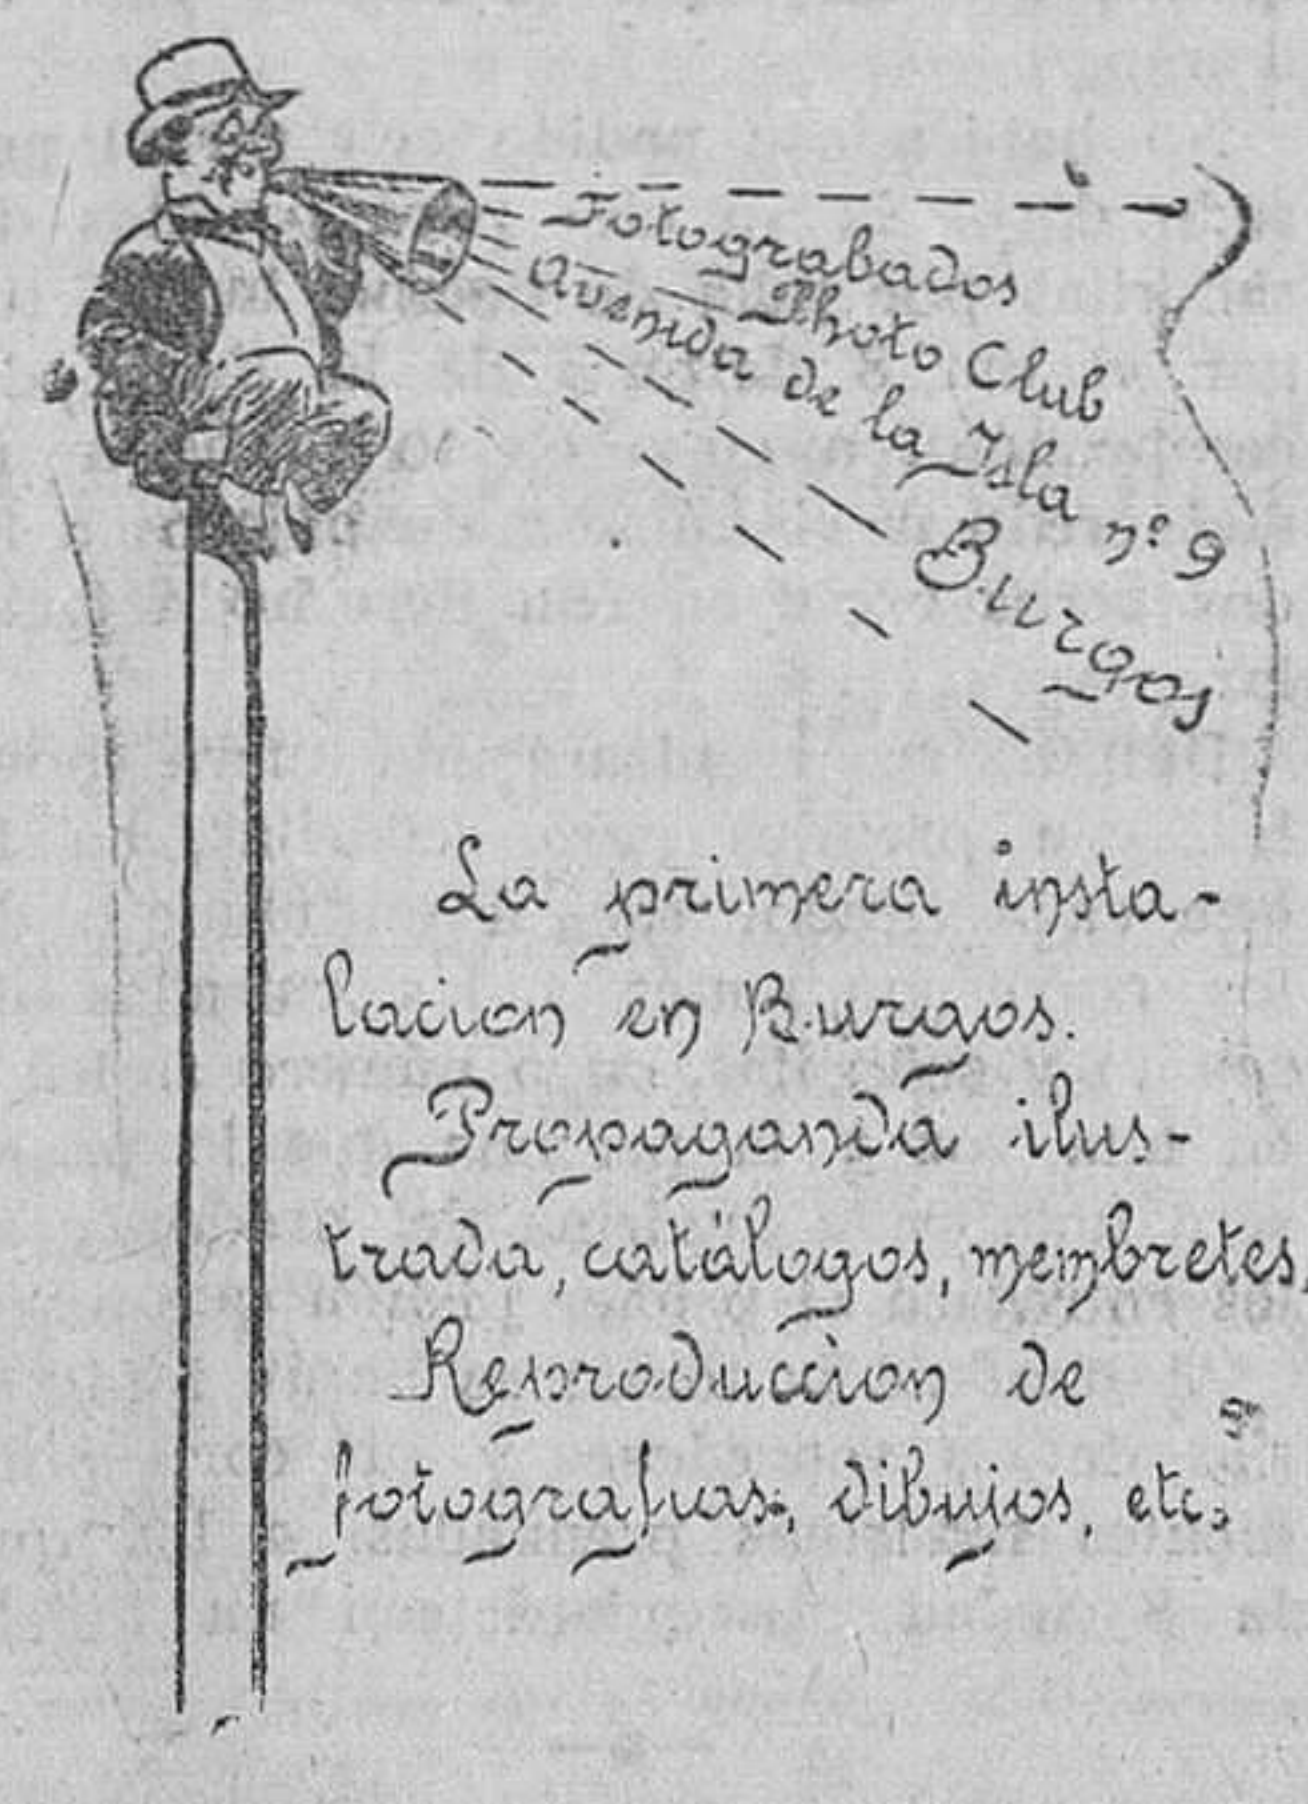 Fotograbados
Photo Club
Avenida de la Isla nº 9
Burgos
La primera insta-
lacion en Burgos.
Propaganda ilus-
trada, catálogos, membretes,
Reproduccion de
fotografias, dibujos, etc.